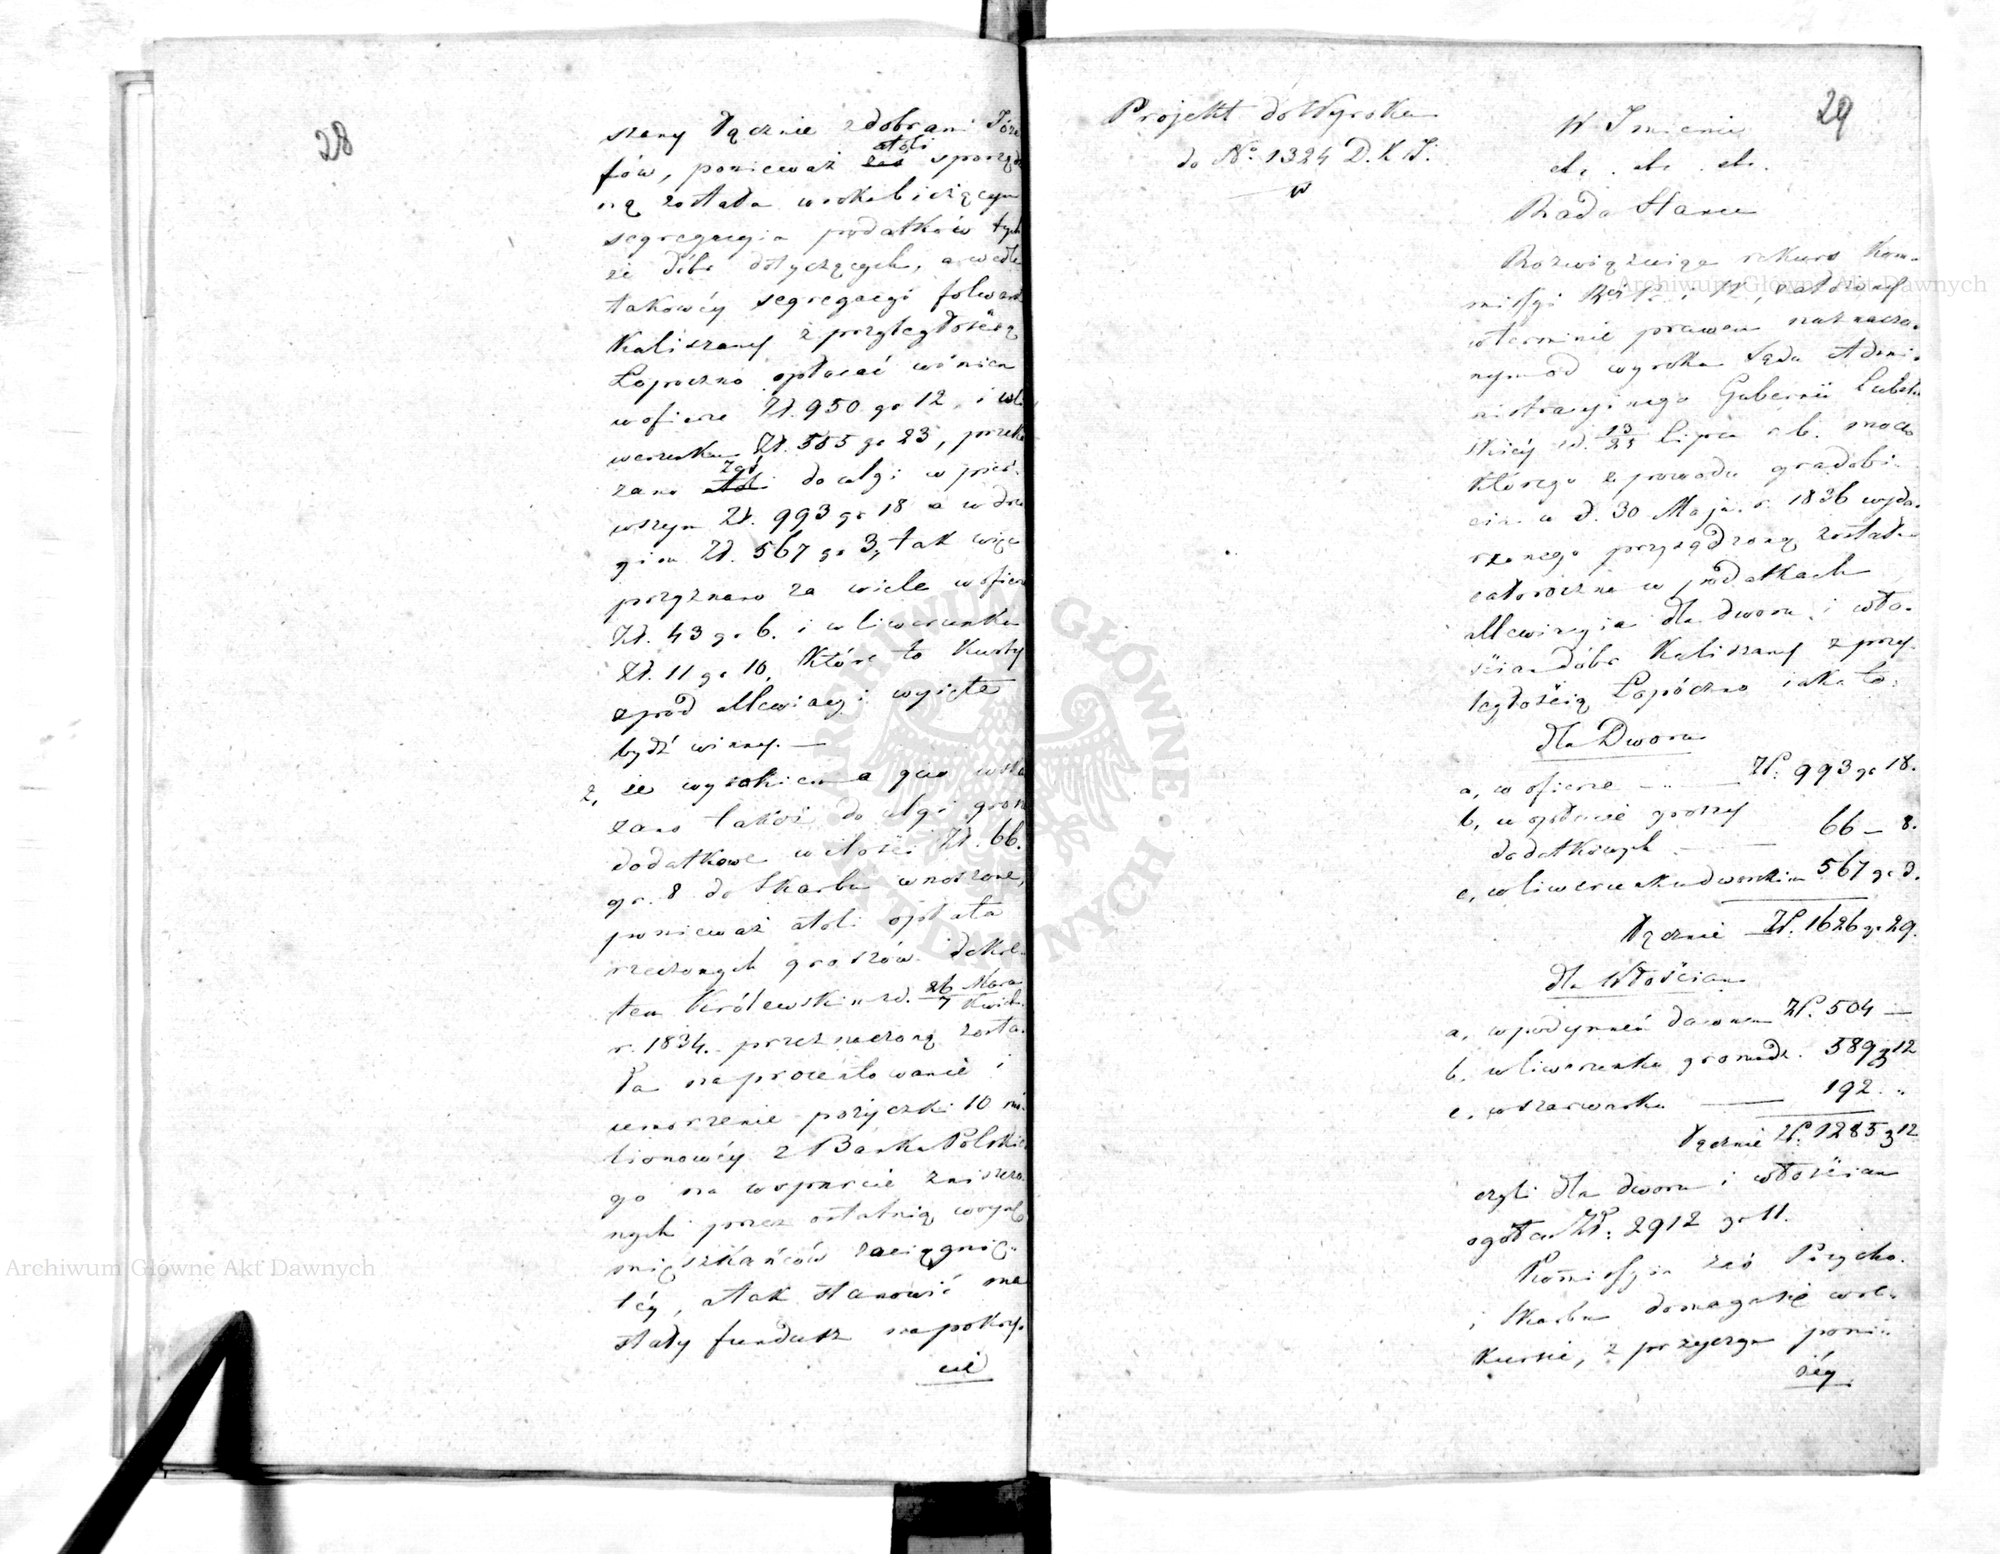 28
szany łącznie z dobrami Józe
fów, ponieważ zaś atoli sporzą
ną została w roku bieżącym
segregacyia podatków tych
że dóbr dotyczących, a wedle
takowéy segregacyi folwark
Kaliszany z przyległością
Łopoczno opłacać winien
w ofierze Zł. 950 gr 12, i w li
werunku Zł. 555 gr 23, przeka
zano atoli zaś do ulgi w pier-
wszym Zł. 993 gr 18 a w dru
gim Zł. 567 gr 3, tak więc
przyznano za wiele w ofierze
Zł. 43 gr 6. i w liwerunku
Zł. 11 gr 10, które to kwoty
z pod allewiacyi wyięte
bydź winny. —
2, że wyrokiem a quo wska
zano także do ulgi grosze
dodatkowe w ilości Zł. 66.
gr. 8 do Skarbu wnoszone,
ponieważ atoli opłata
rzeczonych groszów dekre-
tem Królewskim z d. 26/7 Marca/Kwiet.
r. 1834. przeznaczoną zosta-
ła na procentowanie i
umorzenie pożyczki 10 mi-
lionowéy z Banku Polskie
go na wsparcie zniszczo-
nych przez ostatnią woynę
mieszkańców zaciągnię-
téy, a tak stanowić ma
stały fundusz na pokry-
cie
29
Projekt do Wyroku
do No. 1324 D.K.J.
W Imieniu
etc. etc. etc.
Rada Stanu
Rozwiązuiąc rekurs Kom-
missyi Rz. P. i S., założony
w terminie prawem naznaczo-
nym od wyroku Sądu Admi-
nistracyinego Gubernii Lubel-
skiéy z d. 13/25 Lipca r. b. mocą
którego z powodu gradobi-
cia w d. 30 Maja r. 1836 wyda-
rzonego przysądzoną została
całoroczna w podatkach
allewiacyia dla dworu i wło-
ścian dóbr Kaliszany z przy-
ległością Łopoczno iako to:
dla Dworu
a, w ofierze — Zł. 993 gr 18.
b, w opłacie groszy
dodatkowych — 66 — 8.
c, w liwerunku dworskim 567 gr 3.
Łącznie Zł. 1626 gr 29.
dla Włościan
a, w podymném dawnem Zł. 504 —
b, w liwerunku gromadz. 589 g 12
c, w szarwarku — 192. "
Łącznie Zł. 1285 g 12
czyli dla dworu i włościan
ogółem Zł. 2912 gr 11.
Kommissyia zaś Przycho.
i Skarbu domaga się w re-
kursie, z przyczyn poni-
żéy
Archiwum Główne Akt Dawnych
Archiwum Główne Akt Dawnych
ARCHIWUM GŁÓWNE AKT DAWNYCH